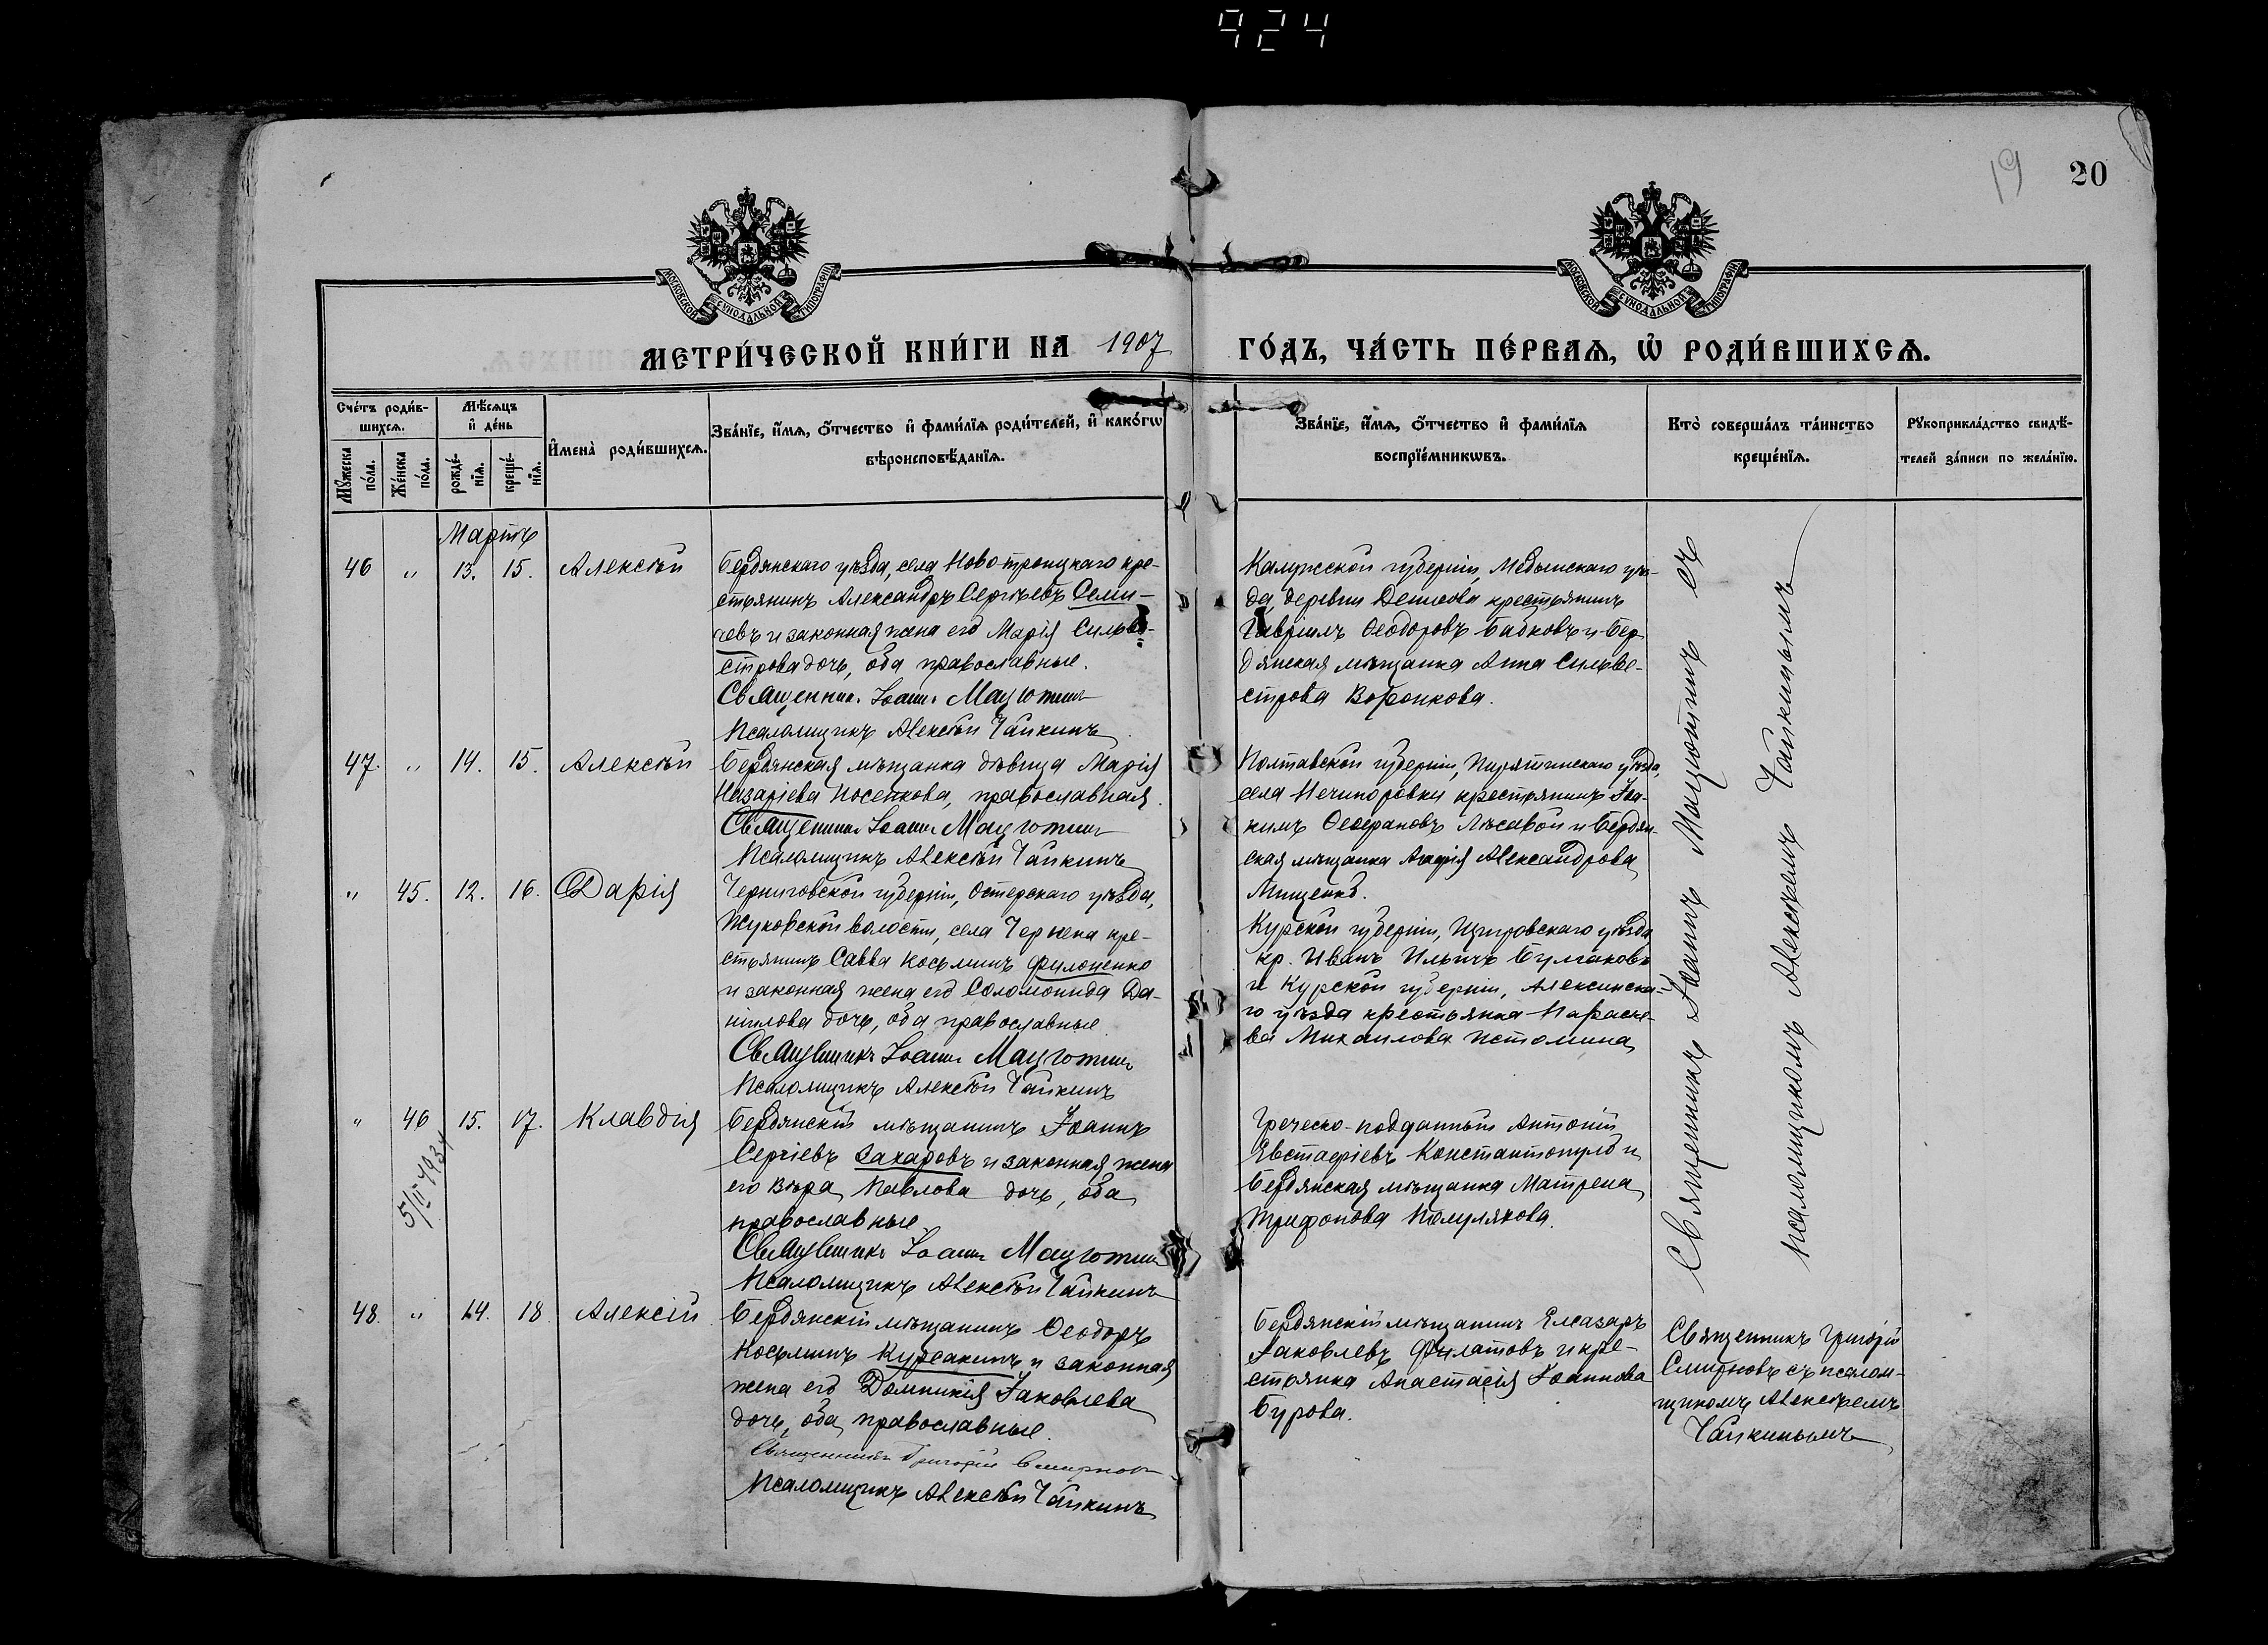 924
19
20
МОСКОВСКОЙ СѴНОДАЛЬНОЙ ТИПОГРАФІИ
МОСКОВСКОЙ СѴНОДАЛЬНОЙ ТИПОГРАФІИ
МЕТРИ́ЧЕСКОЙ КНИ́ГИ НА 1907 ГО́ДЪ, ЧА́СТЬ ПЕ́РВАѦ, Ѡ҆ РОДИ́ВШИХСѦ.
Сче́тъ роди́в-
шихсѧ.
Мꙋ́жеска по́ла.
Же́нска по́ла.
Мѣ́сѧцъ
и҆ де́нь
рожде́-
нїѧ.
креще́-
нїѧ.
И҆мена̀ роди́вшихсѧ.
Зва́нїе, и҆́мѧ, ѻ҆́тчество и҆ фами́лїѧ роди́телей, и҆ како́гѡ
вѣроисповѣ́данїѧ.
Зва́нїе, и҆́мѧ, ѻ҆́тчество и҆ фами́лїѧ
воспрїе́мникѡвъ.
Кто̀ соверша́лъ та́инство
креще́нїѧ.
Рꙋкоприкла́дство свидѣ́-
телей за́писи по жела́нїю.
Мартъ
46 " 13. 15. Алексѣй
Бердянскаго уѣзда, села Ново-троицкаго кре-
стьянинъ Александръ Сергѣевъ Семи-
чевъ и законная жена его Марія Сильве-
строва дочь, оба православные.
Священник Іоанн Мацютин
Псаломщикъ Алексѣй Чайкинъ
Калужской губерніи, Медынскаго уѣз-
да, деревни Денисова крестьянинъ
Гавріилъ Ѳеодоровъ Бабковъ и Бер-
дянская мѣщанка Анна Сильве-
строва Воронкова.
47. " 14. 15. Алексѣй
Бердянская мѣщанка дѣвица Марія
Назаріева Носенкова, православная.
Священник Іоанн Мацютин
Псаломщикъ Алексѣй Чайкинъ
Полтавской губерніи, Пирятинскаго уѣзда,
села Нечипоровки крестьянинъ Іоа-
кимъ Ѳеофановъ Лѣсавой и Бердян-
ская мѣщанка Агафія Александрова
Мищенко.
" 45. 12. 16. Дарія
Черниговской губерніи, Остерскаго уѣзда,
Жуковской волости, села Чернена кре-
стьянинъ Савва Косьминъ Филоненко
и законная жена его Соломонида Да-
ніилова дочь, оба православные.
Священникъ Іоанн Мацютин
Псаломщикъ Алексѣй Чайкинъ
Курской губерніи, Щигровскаго уѣзда
кр. Иванъ Ильичъ Булгаковъ
и Курской губерніи, Алексинска-
го уѣзда крестьянка Параске-
ва Михаилова Истомина
" 46 15. 17. Клавдія
5/II-1934
Бердянскій мѣщанинъ Іоаннъ
Сергіевъ Захаровъ и законная жена
его Вѣра Павлова дочь, оба
православные
Священникъ Іоанн Мацютин
Псаломщикъ Алексѣй Чайкинъ
Греческо-подданный Антоній
Евстафіевъ Константопуло и
Бердянская мѣщанка Матрена
Трифонова Полулякова.
Священникъ Іоаннъ Мацютинъ съ
псаломщикомъ Алексѣемъ Чайкинымъ
48. " 14. 18. Алексій
Бердянскій мѣщанинъ Ѳеодоръ
Косьминъ Курсакинъ и законная
жена его Домникія Іаковлева
дочь, оба православные.
Священникъ Григорій Смирнов
Псаломщикъ Алексѣй Чайкинъ
Бердянскій мѣщанинъ Елеазаръ
Іаковлевъ Филатовъ и кре-
стьянка Анастасія Іоаннова
Бурова.
Священникъ Григорій
Смирновъ съ псалом-
щикомъ Алексѣемъ
Чайкинымъ